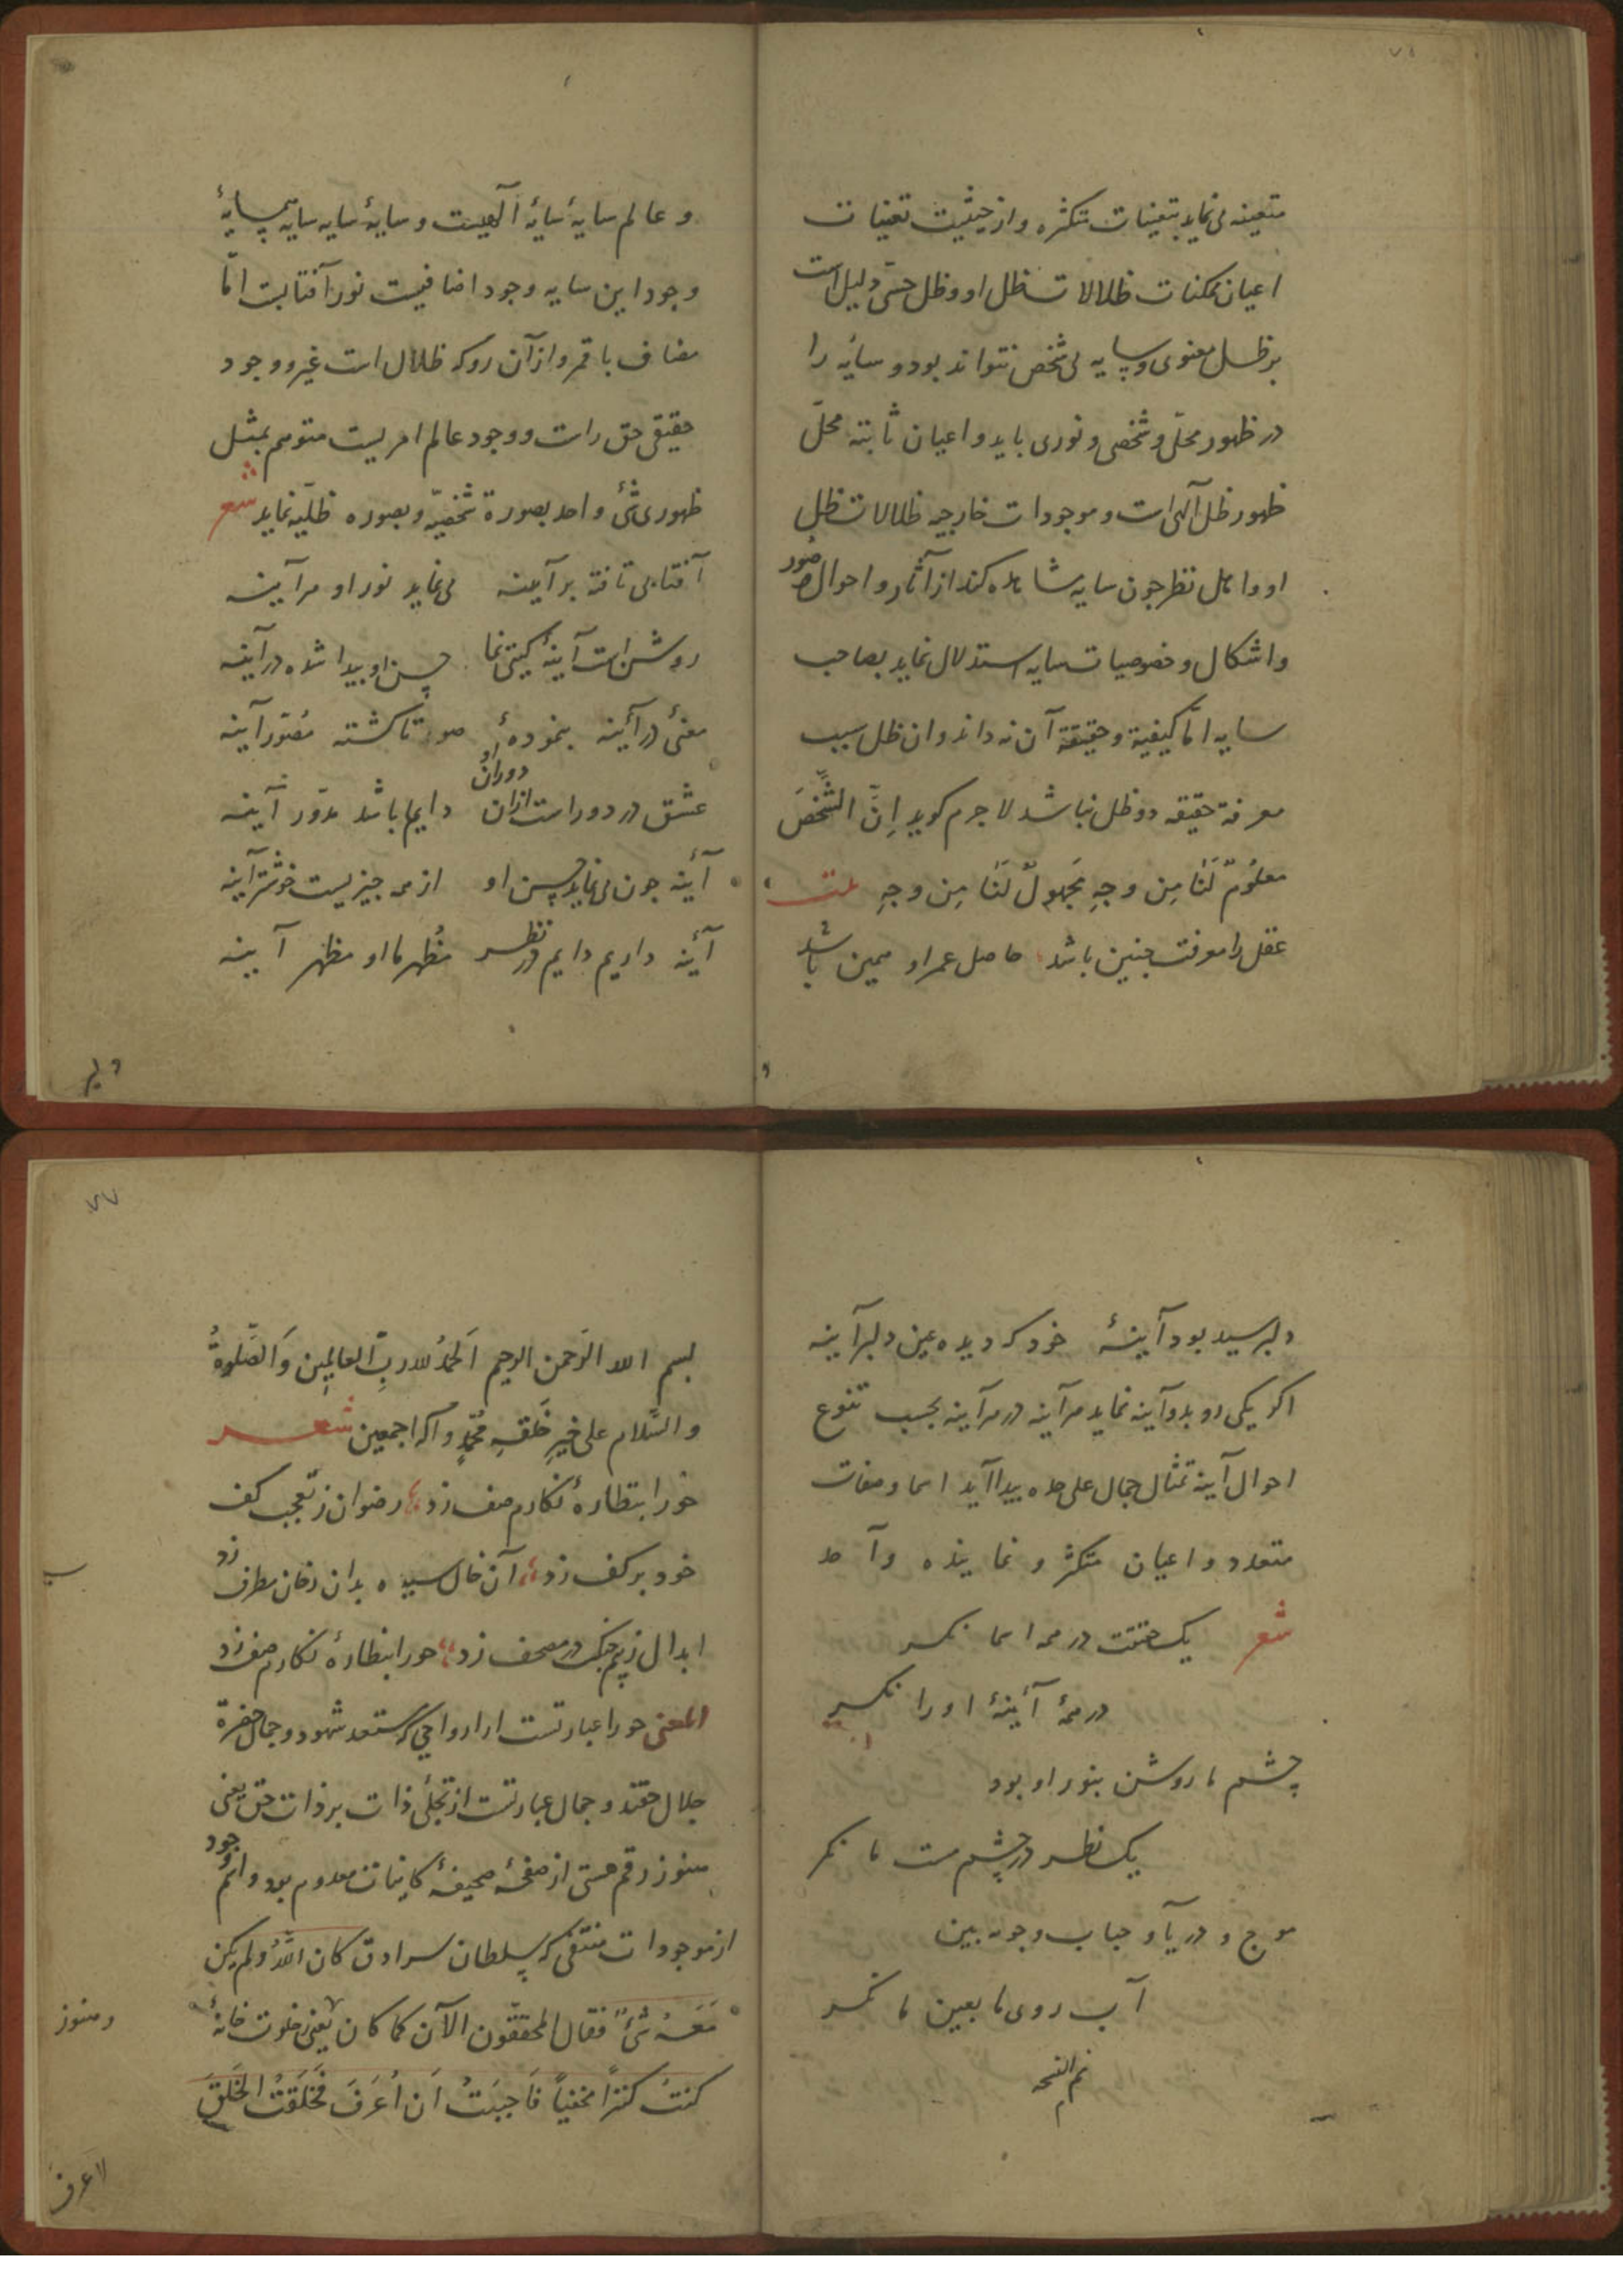 متعینه می نماید بتعینات متکثره و از حیثیت تعینات
اعیان ممکنات ظلالات ظل او و ظل حسّی دلیل است
بر ظل معنوی و سایه بی شخص نتواند بود و سایه را
در ظهور محلّ و شخصی و نوری باید و اعیان ثابته محلّ
ظهور ظل الهی است و موجودات خارجیه ظلالات ظل
او و اهل نظر چون سایه مشاهده کنند از آثار و احوال و صور
و اشکال و خصوصیات سایه استدلال نماید بصاحب
سایه امّا کیفیة و حقیقة آن نداند و ان ظل سبب
معرفة حقیقه دو ظل نباشد لاجرم کوید اِنَّ الشَّخصَ
معلُومٌ لَنَا مِن وجهٍ مَجهولٌ لَنَا مِن وجهٍ
عقل را معرفت چنین باشد حاصل عمر او همین باشد
و عالم سایهٔ سایهٔ الهیست و سایهٔ سایه سایه همسایهٔ
وجود این سایه وجود اضافیست نور آفتابست امّا
مضاف با قمر و از آن رو که ظلال است غیر و وجود
حقیقی حق راست و وجود عالم امریست متوهم بمثل
ظهوری شئ واحد بصورة شخصیّه و بصوره ظلّیه نماید شعر
آفتابی تافته بر آینه می نماید نور او هر آینه
روشن است آینهٔ کیتی نما حسن او پیدا شده در آینه
معنی در آینه بنمودهٔ صورتا کشته مصوّر آینه
عشق در دوراست ازان دوران او دایم باشد مدوّر آینه
آینه چون می نماید حسن او از همه چیزیست خوشتر آینه
آینه داریم دایم در نظر مُظهر ما او مظهر آینه
دلبر
دلبر سید بود آینهٔ خود که دیده عین دلبر آینه
اکر یکی رو بدو آینه نماید هر آینه در هر آینه بحسب تنوع
احوال آینه تمثال جمال علی حده پیدا آید اسما و صفات
متعدد و اعیان متکثر و نماینده واحد
شعر یک حقیقت در همه اسما نکر
در همهٔ آئینهٔ او را نکر
چشم ما روشن بنور او بود
یک نظر در چشم مست ما نکر
موج و دریا و حباب و جو ببین
آب روی ما بعین ما نکر
تم النسخه
بسم الله الرحمن الرحیم اَلحمدُ لله ربِّ العالمِین وَالصَّلوةُ
والسَّلام علی خیرِ خَلقهِ مُحَمّدٍ وآله اجمعین شعر
حورا بنظارهٔ نکارم صف زد رضوان ز تعجب کف
خود بر کف زد آن خال سیه بدان رخان مطرف زد
ابدال ز بیم چنک در مصحف زد حورا بنظارهٔ نکارم صف زد
المعنی حورا عبارتست از ارواحی که مستعد شهود و جمال حضرة
جلال حقند و جمال عبارتست از تجلّی ذات بر ذات حق یعنی
هنوز رقم هستی از صفحهٔ صحیفهٔ کاینات معدوم بود و اسم وجود
از موجودات منتفی که سلطان سرادق کان اللهُ ولم یکن
مَعَهُ شئٌ فقال المحققون الآن کما کان یعنی خلوت خانهٔ
کنتُ کنزاً مخفیاً فَاَحببتُ اَن اُعرَفَ فَخَلَقتُ الخَلقَ
لاعرف
و هنوز